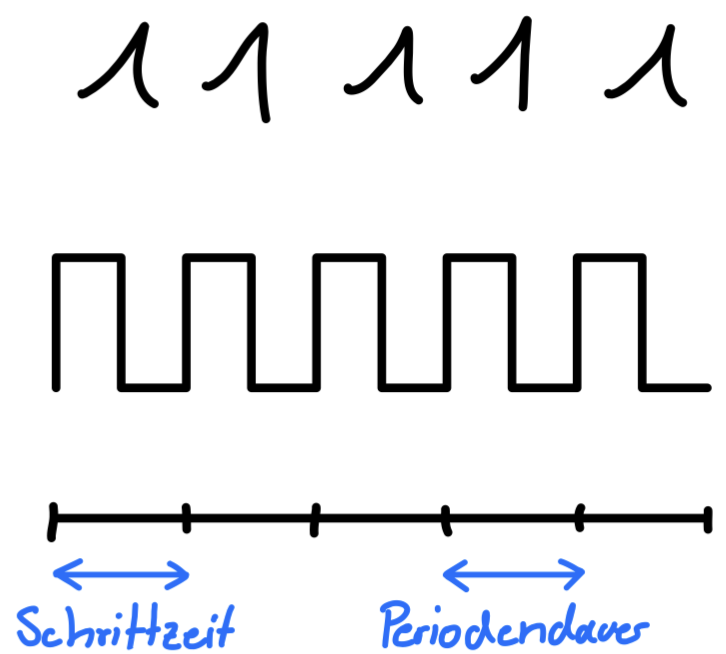 1 1 1 1 1
Schrittzeit Periodendauer